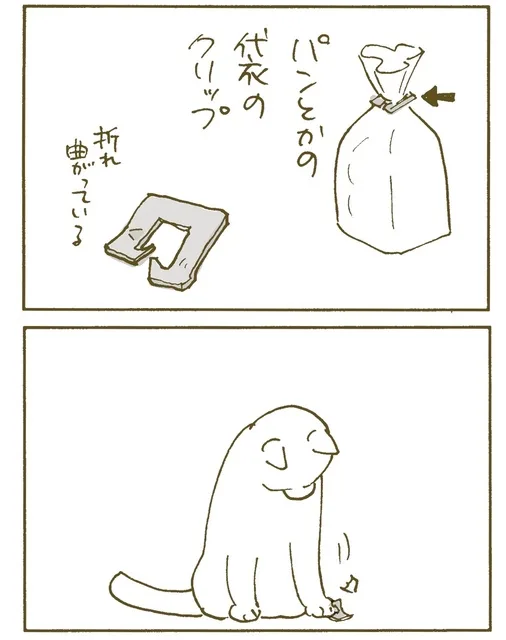 パンとかの
袋の
クリップ
折れ
曲がっている